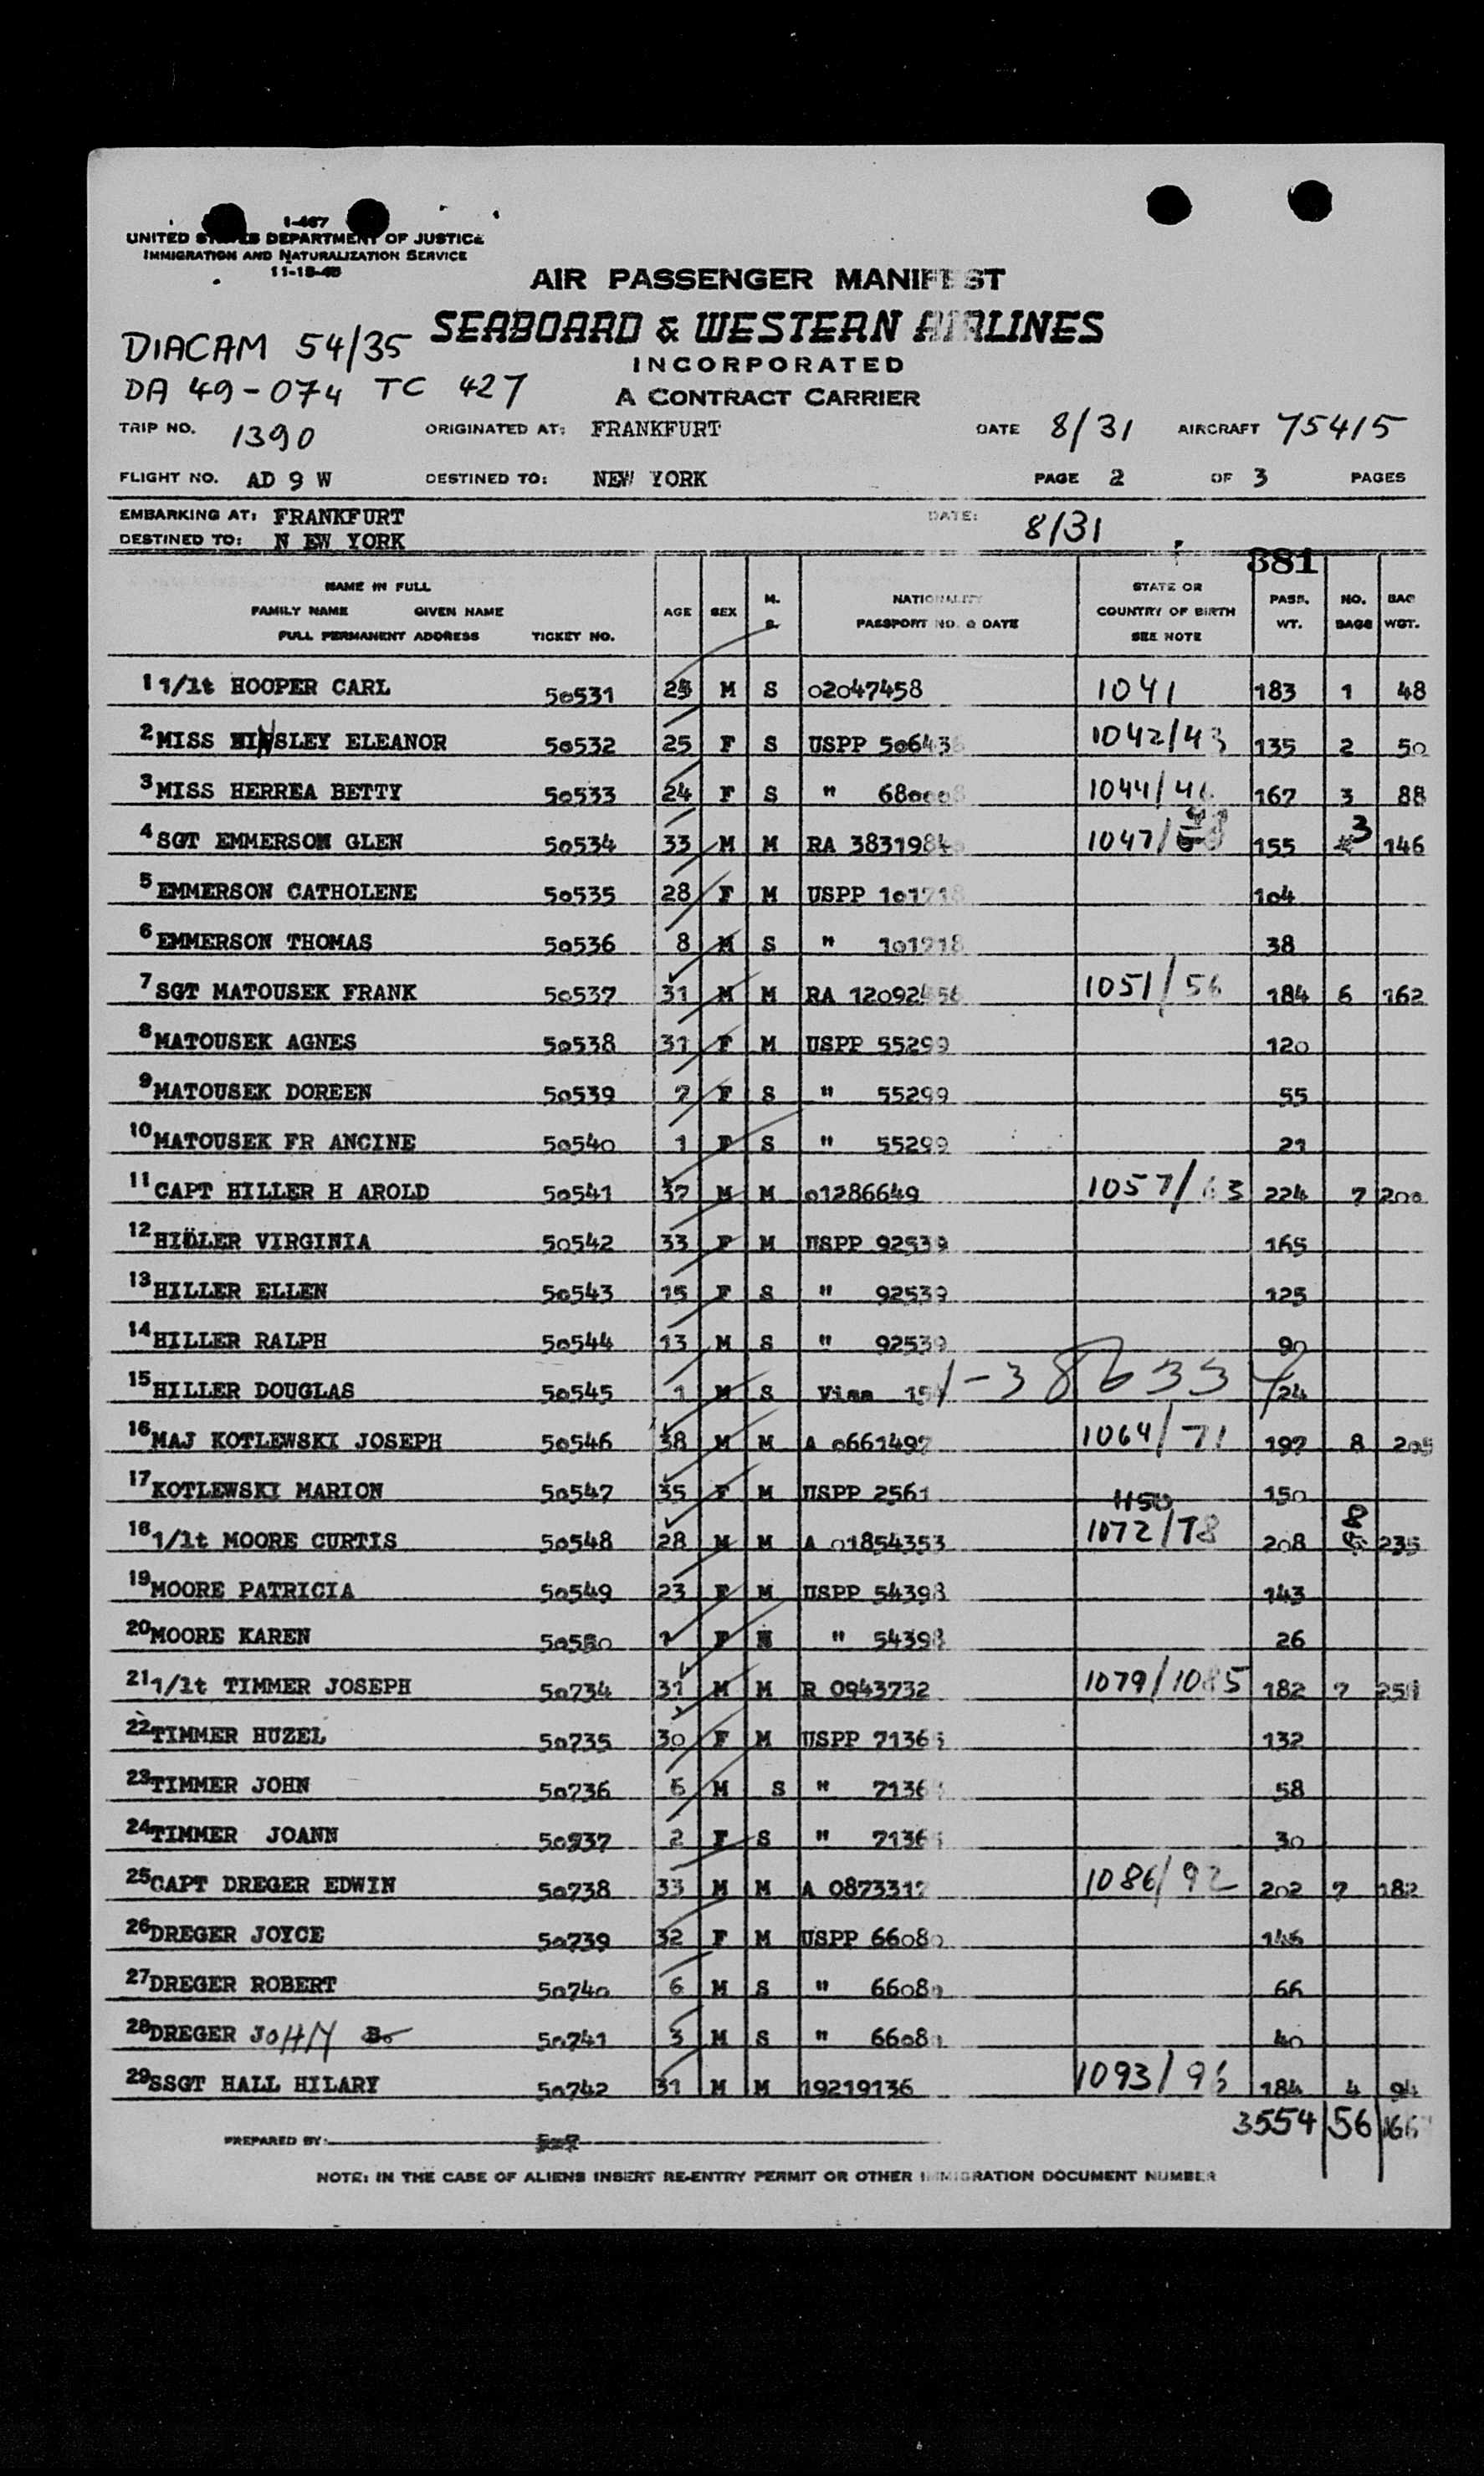 I-467
UNITED STATES DEPARTMENT OF JUSTICE
IMMIGRATION AND NATURALIZATION SERVICE
AIR PASSENGER MANIFEST
SEABOARD & WESTERN AIRLINES
INCORPORATED
A CONTRACT CARRIER
DIACAM 54/35
DA 49-074 TC 427
TRIP NO. 1390 ORIGINATED AT: FRANKFURT DATE 8/31 AIRCRAFT 75415
FLIGHT NO. AD 9 W DESTINED TO: NEW YORK PAGE 2 OF 3 PAGES
EMBARKING AT: FRANKFURT DATE: 8/31
DESTINED TO: N EW YORK
381
NAME IN FULL
FAMILY NAME GIVEN NAME
FULL PERMANENT ADDRESS TICKET NO. AGE SEX M. S. NATIONALITY PASSPORT NO. & DATE STATE OR COUNTRY OF BIRTH SEE NOTE PASS. WT. NO. BAGS BAG WGT.
1 1/lt HOOPER CARL 50531 M S 02047458 1041 183 1 48
2 MISS HINSLEY ELEANOR 50532 25 F S USPP 1042/43 135 2 50
3 MISS HERREA BETTY 50533 24 F S " 1044/46 167 3 88
4 SGT EMMERSON GLEN 50534 33 M M RA 1047/ 155 3 146
5 EMMERSON CATHOLENE 50535 28 F M USPP 104
6 EMMERSON THOMAS 50536 8 M S " 38
7 SGT MATOUSEK FRANK 50537 31 M M RA 1051/56 184 6 162
8 MATOUSEK AGNES 50538 31 F M USPP 55299 120
9 MATOUSEK DOREEN 50539 7 F S " 55299 55
10 MATOUSEK FR ANCINE 50540 1 F S " 55299 21
11 CAPT HILLER H AROLD 50541 37 M M 01286649 1057/63 224 7 200
12 HILLER VIRGINIA 50542 33 F M USPP 92539 165
13 HILLER ELLEN 50543 15 F S " 92539 125
14 HILLER RALPH 50544 13 M S " 92539 90
15 HILLER DOUGLAS 50545 1 M S Visa 24
16 MAJ KOTLEWSKI JOSEPH 50546 38 M M A 0661497 1064/71 197 8 205
17 KOTLEWSKI MARION 50547 35 F M USPP 2561 150
18 1/lt MOORE CURTIS 50548 28 M M A 01854353 1072/78 208 235
19 MOORE PATRICIA 50549 23 F M USPP 54398 143
20 MOORE KAREN 50550 F " 54398 26
21 1/lt TIMMER JOSEPH 50734 31 M M R 0943732 1079/1085 182 7
22 TIMMER HUZEL 50735 30 F M USPP 132
23 TIMMER JOHN 50736 M S " 58
24 TIMMER JOANN 50737 2 F S " 30
25 CAPT DREGER EDWIN 50738 33 M M A 0873317 1086/92 202 7 182
26 DREGER JOYCE 50739 32 F M USPP 66080 146
27 DREGER ROBERT 50740 6 M S " 66080 66
28 DREGER JOHN 50741 3 M S " 66080 40
29 SSGT HALL HILARY 50742 31 M M 19219136 1093/96 184 4 94
3554 56
PREPARED BY:
NOTE: IN THE CASE OF ALIENS INSERT RE-ENTRY PERMIT OR OTHER IMMIGRATION DOCUMENT NUMBER